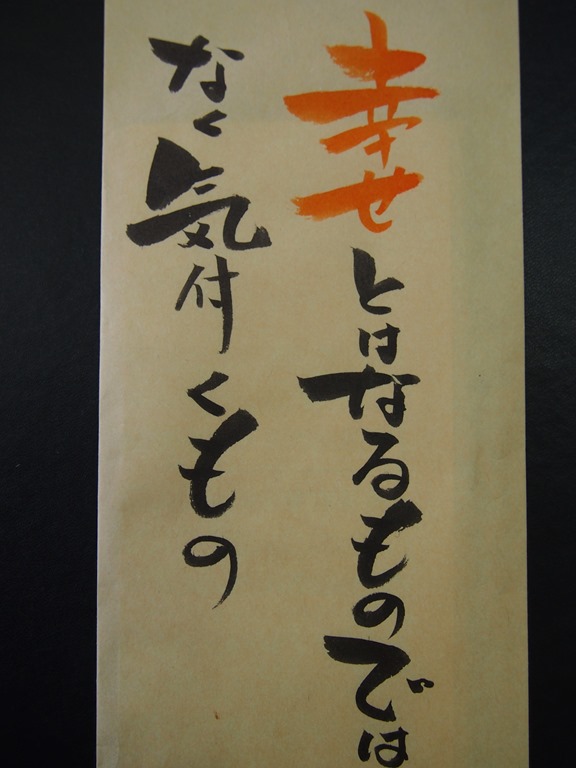 幸せとはなるものでは
なく気付くもの